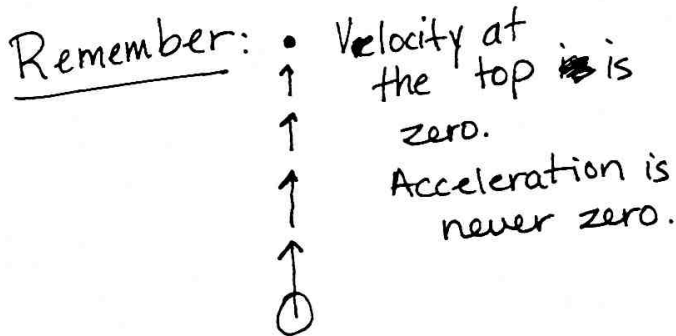 Remember: Velocity at
the top is
zero.
Acceleration is
never zero.